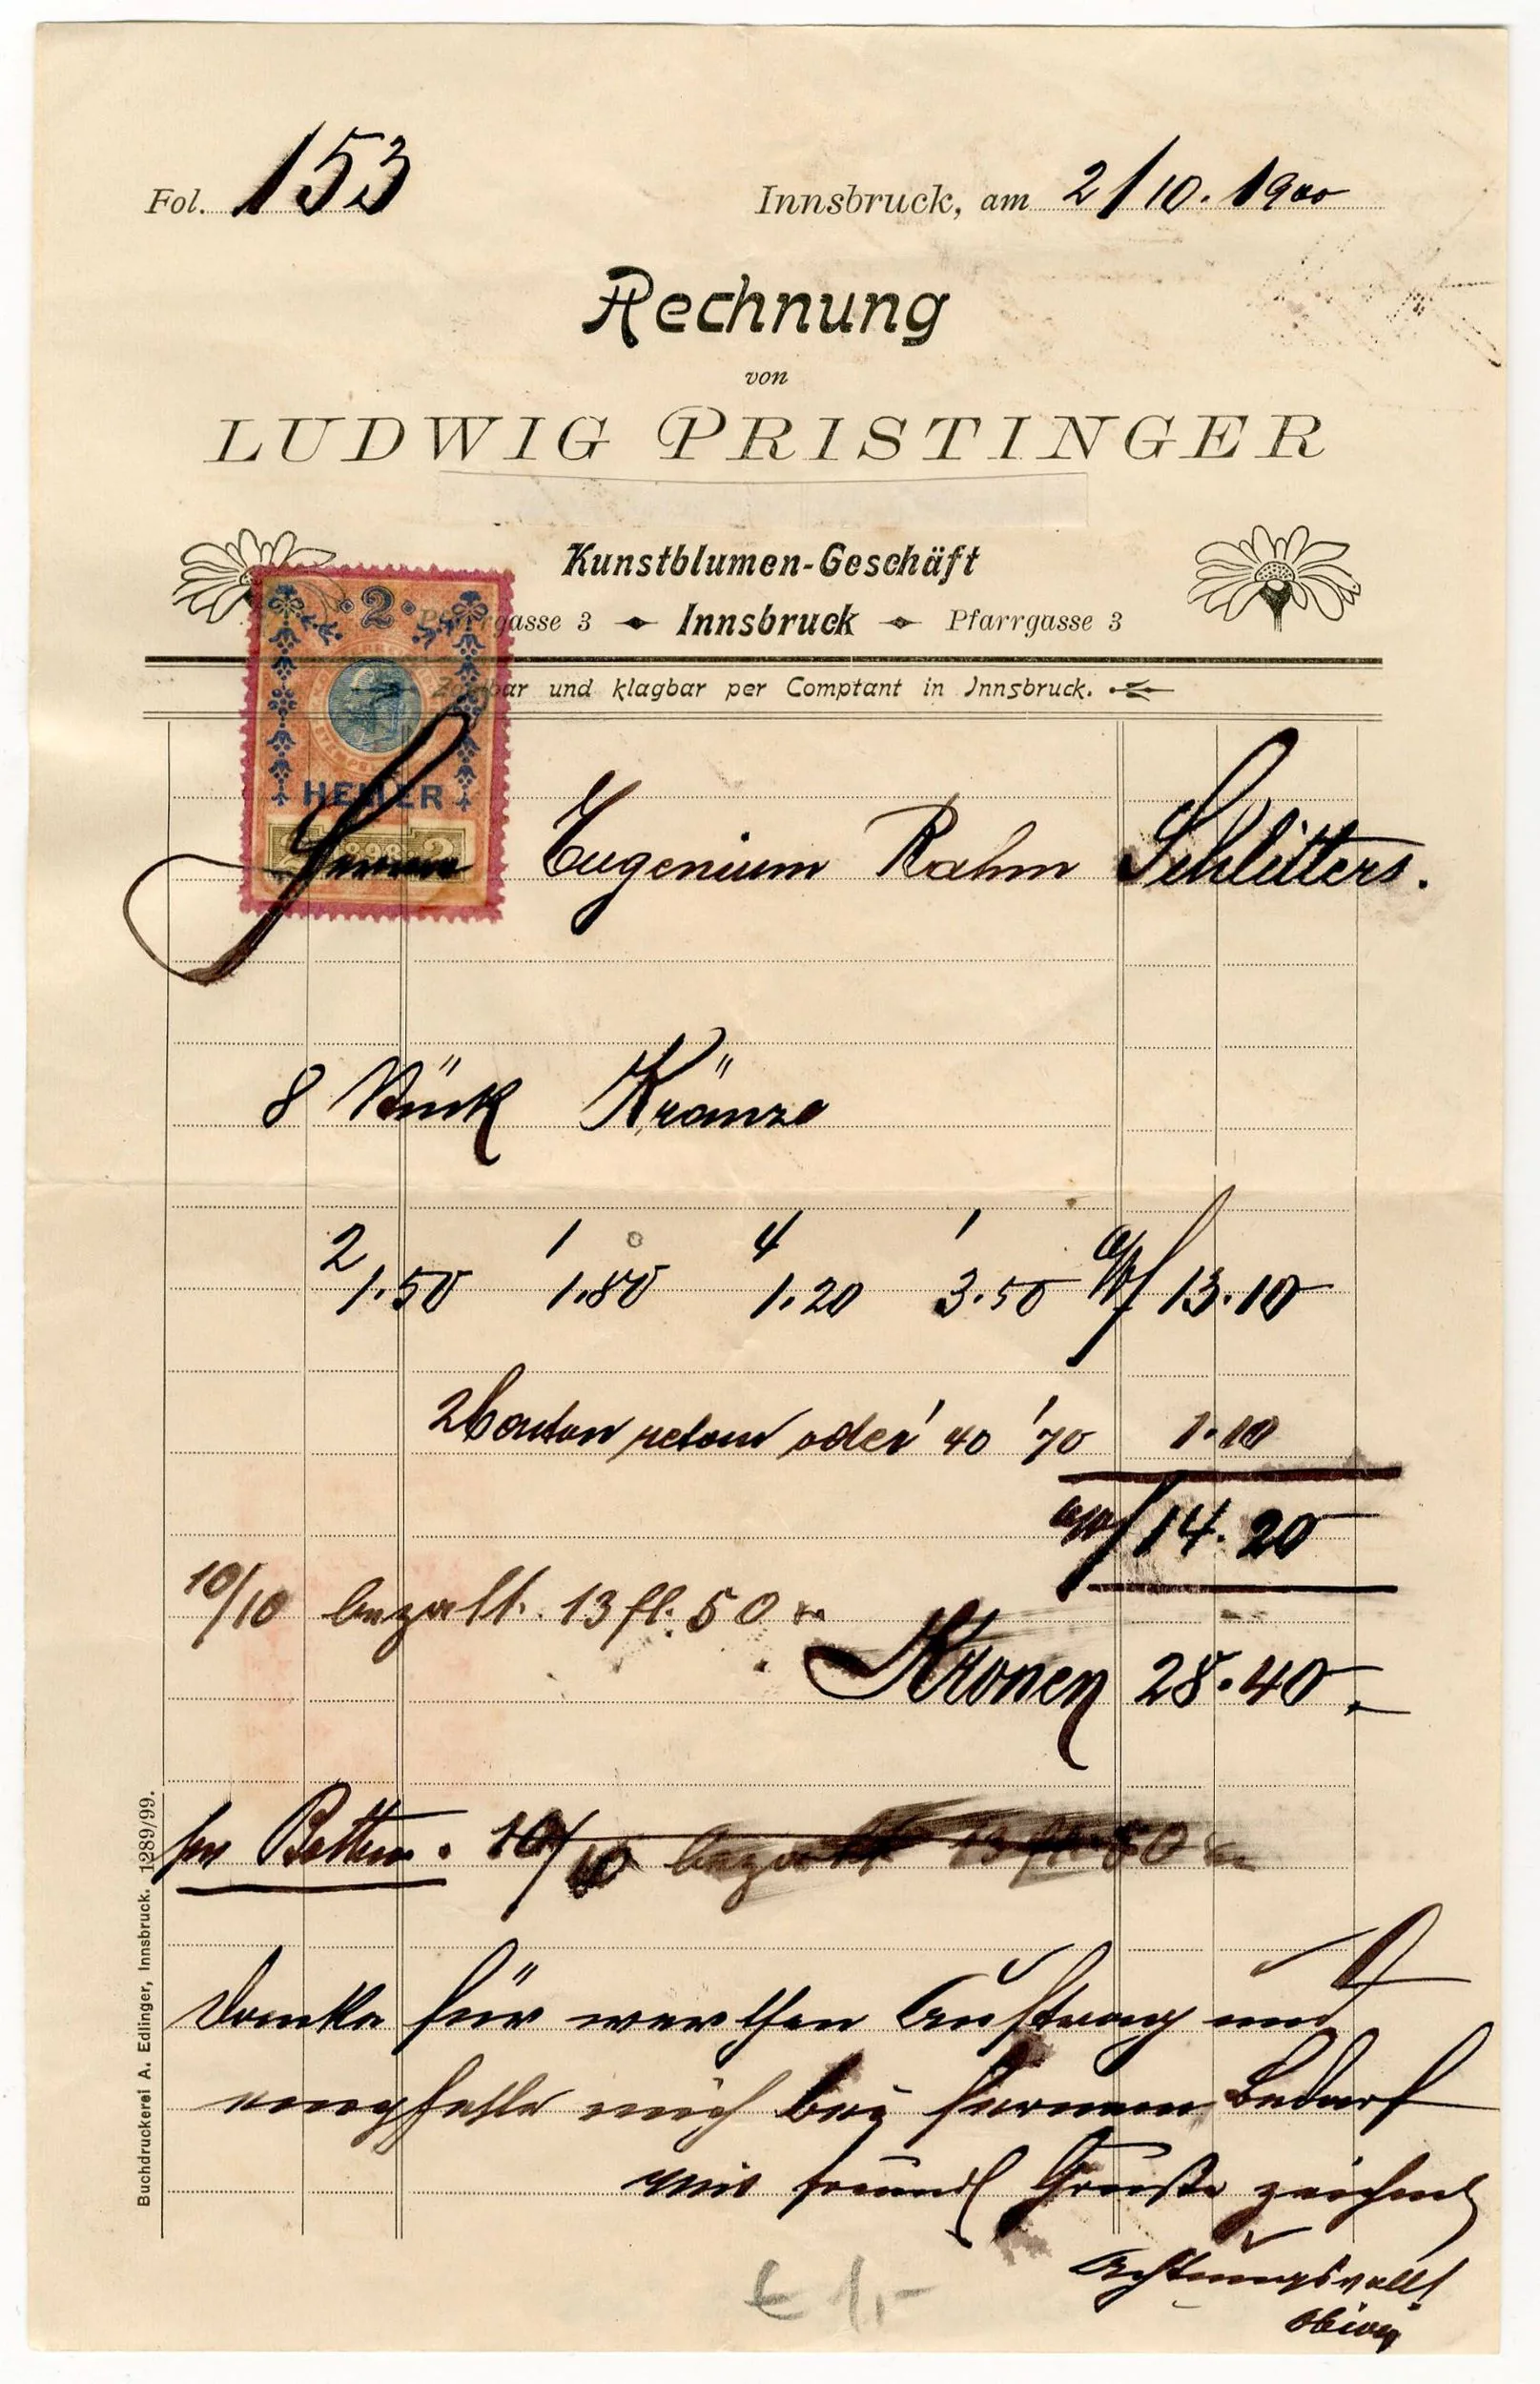 Fol. 153
Innsbruck, am 2/10. 1900
Rechnung
von
LUDWIG PRISTINGER
Kunstblumen-Geschäft
Pfarrgasse 3 Innsbruck Pfarrgasse 3
Zahlbar und klagbar per Comptant in Innsbruck.
2
HELLER
2 1898 2
Herrn Eugenium Rahm Schlitters.
8 Stück Kränze
2 1 4 1
1.50 1.80 1.20 3.50 f 13.10
2 Carton retour oder 1 40 1 70 1.10
f 14.20
10/10 bezalt. 13 fl. 50 kr
Kronen 28.40.
per 10/10 bezalt 13 fl. 50 kr
Danke für werthen Auftrag und
empfehle mich bei fernem Bedarf
mit freundl Grusse zeichnet
Achtungsvollst
Obiger
€ 1,-
Buchdruckerei A. Edlinger, Innsbruck. 1289/99.